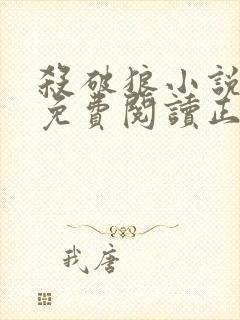 殺破狼小說
免費閱讀正
我唐